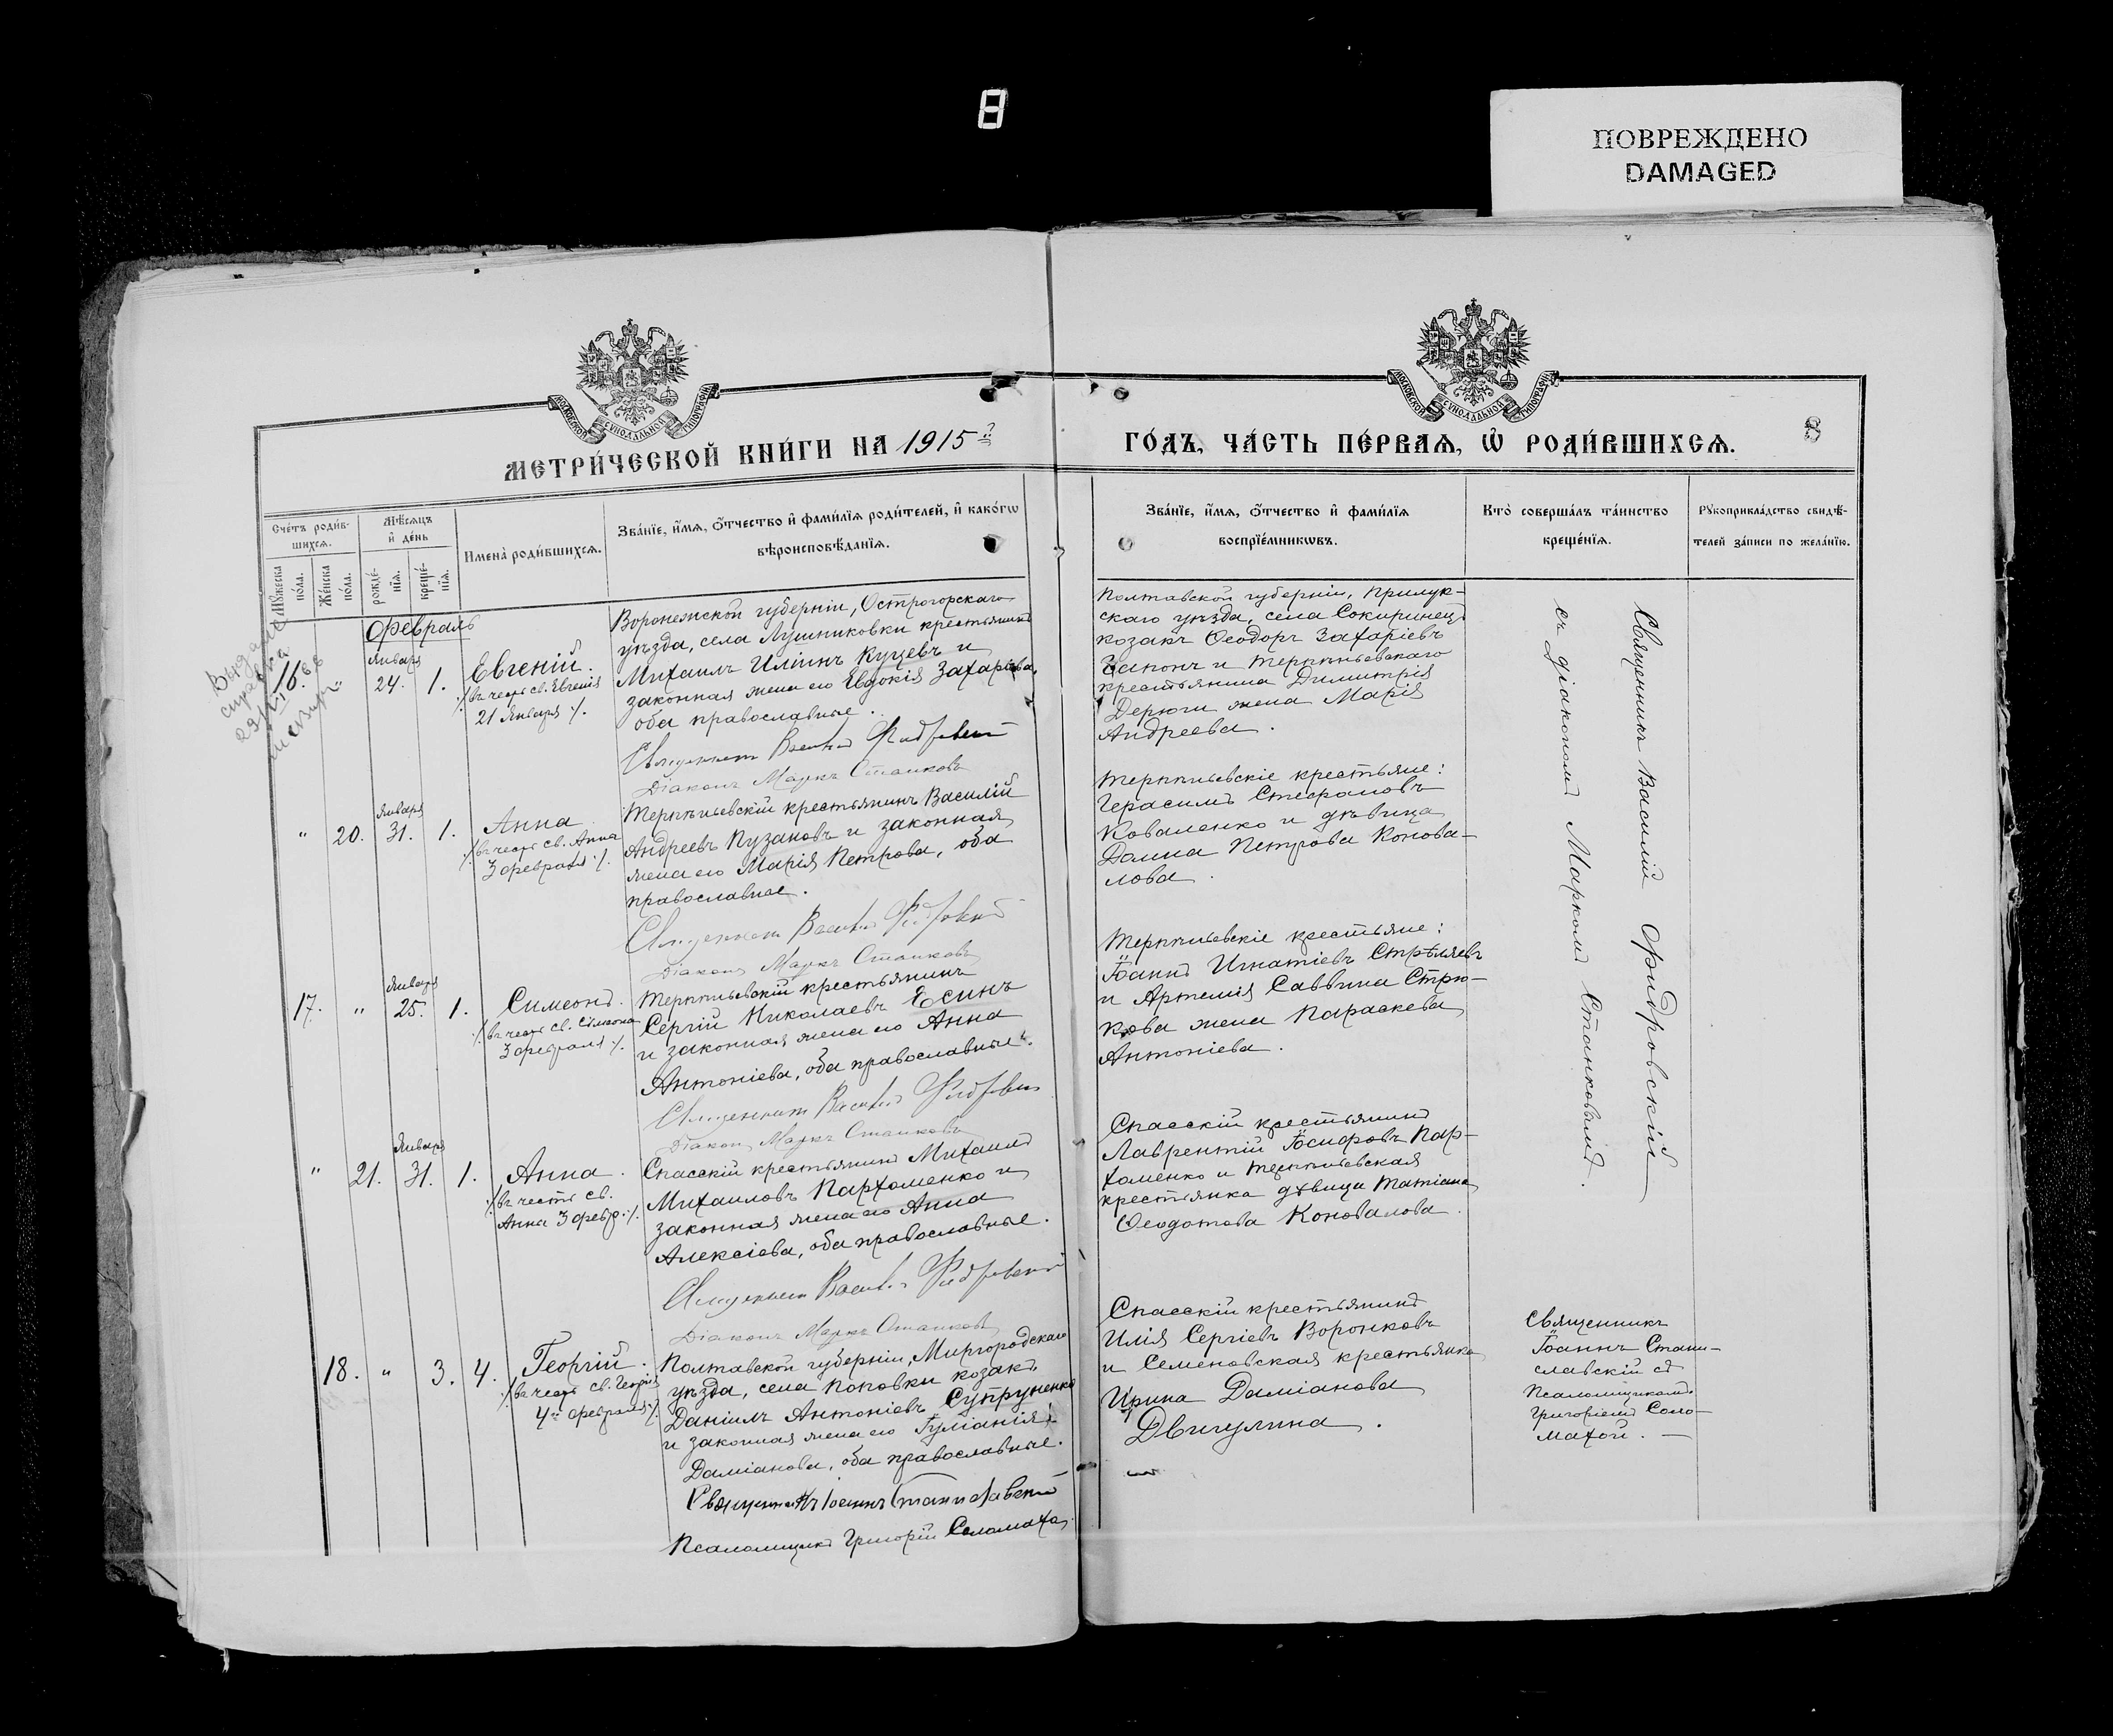 8
ПОВРЕЖДЕНО
DAMAGED
МОСКОВСКОЙ СѴНОДАЛЬНОЙ ТИПОГРАФІИ
МОСКОВСКОЙ СѴНОДАЛЬНОЙ ТИПОГРАФІИ
МЕТРИ́ЧЕСКОЙ КНИ́ГИ НА 1915
ГО́ДЪ, ЧА́СТЬ ПЕ́РВАЯ, Ѡ҆ РОДИ́ВШИХСЯ.
8
Сче́тъ роди́в-
шихся.
Мѣ́сяцъ
и҆ де́нь
Мꙋ́жеска
по́ла.
Же́нска
по́ла.
рожде́-
нїя.
креще́-
нїя.
Имена̀ роди́вшихся.
Зва́нїе, и҆́мя, ѻ҆́тчество и҆ фами́лїя роди́телей, и҆ како́гѡ
вѣроисповѣ́данїя.
Зва́нїе, и҆́мя, ѻ҆́тчество и҆ фами́лїя
воспрїе́мниковъ.
Кто̀ соверша́лъ та́инство
креще́нїя.
Рꙋкоприкла́дство свидѣ́-
телей за́писи по жела́нїю.
Февраль
16. "
Января
24. 1.
Евгеній.
/:въ честь св. Евгенія
21 Января:/.
Воронежской губерніи, Острогорскаго
уѣзда, села Лушниковки крестьянинъ
Михаилъ Иліинъ Куцевъ и
законная жена его Евдокія Захаріева,
оба православные.
Священникъ Василій Фидровскій
Діаконъ Маркъ Станковъ
Полтавской губерніи, Прилук-
скаго уѣзда, села Сокиринец
козакъ Ѳеодоръ Захаріевъ
и Терпѣньевскаго
крестьянина Димитрія
Дерюги жена Марія
Андреева.
Священникъ Василій Фидровскій
съ діакономъ Маркомъ Станковымъ.
" 20.
Января
31. 1.
Анна
/:въ честь св. Анна
3 февраля:/.
Терпѣньевскій крестьянинъ Василій
Андреевъ Пузановъ и законная
жена его Марія Петрова, оба
православные.
Священникъ Василій Фидровскій
Діаконъ Маркъ Станковъ
Терпѣньевскіе крестьяне:
Герасимъ Стефановъ
Коваленко и дѣвица
Домна Петрова Конова-
лова.
17. "
Января
25. 1.
Симеонъ.
/:въ честь св. Симеона
3 февраля:/.
Терпѣньевскій крестьянинъ
Сергій Николаевъ Есинъ
и законная жена его Анна
Антоніева, оба православные.
Священникъ Василій Фидровскій
Діаконъ Маркъ Станковъ
Терпѣньевскіе крестьяне:
Іоаннъ Игнатіевъ Стрѣляевъ
и Артемія Саввина Стрю-
кова жена Параскева
Антоніева.
" 21.
Января
31. 1.
Анна.
/:въ честь св.
Анна 3 февр.:/.
Спасскій крестьянинъ Михаилъ
Михаиловъ Пархоменко и
законная жена его Анна
Алексіева, оба православные.
Священникъ Василій Фидровскій
Діаконъ Маркъ Станковъ
Спасскій крестьянинъ
Лаврентій Іосифовъ Пар-
хоменко и Терпѣньевская
крестьянка дѣвица Татіана
Ѳеодотова Коновалова.
18. " 3. 4.
Георгій.
/:въ честь св. Георгія
4го февраля:/.
Полтавской губерніи, Миргородскаго
уѣзда, села Поповки козакъ
Даніилъ Антоніевъ Супруненко
и законная жена его Іуліанія
Даміанова, оба православные.
Священникъ Іоаннъ Станиславскій
Псаломщикъ Григорій Соломаха.
Спасскій крестьянинъ
Илія Сергіевъ Воронковъ
и Семеновская крестьянка
Ирина Даміанова
Двигулина.
Священникъ
Іоаннъ Стани-
славскій съ
Псаломщикомъ
Григоріемъ Соло-
махой. —